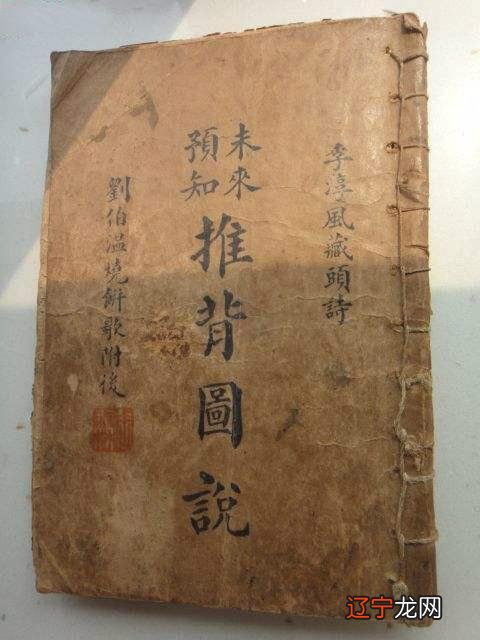 李淳風藏頭詩
未來
預知
推背圖說
劉伯溫燒餅歌附後
辽宁龙网